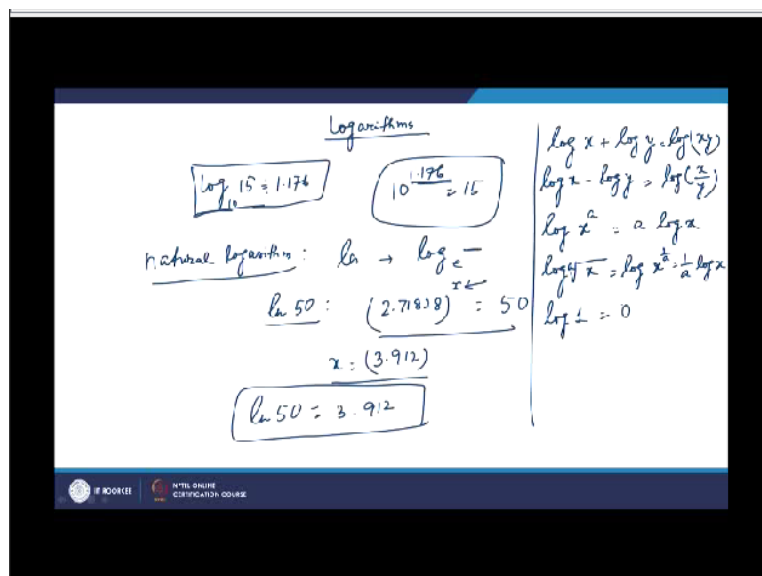 Logarithms
log₁₀ 15 = 1.176
10^1.176 = 15
natural logarithm : ln → logₑ —
ln 50 : (2.71828)^x = 50
x = (3.912)
ln 50 = 3.912
log x + log y = log(xy)
log x - log y = log(x/y)
log x^a = a log x
log ᵃ√x = log x^(1/a) = 1/a log x
log 1 = 0
IIT ROORKEE
NPTEL ONLINE
CERTIFICATION COURSE